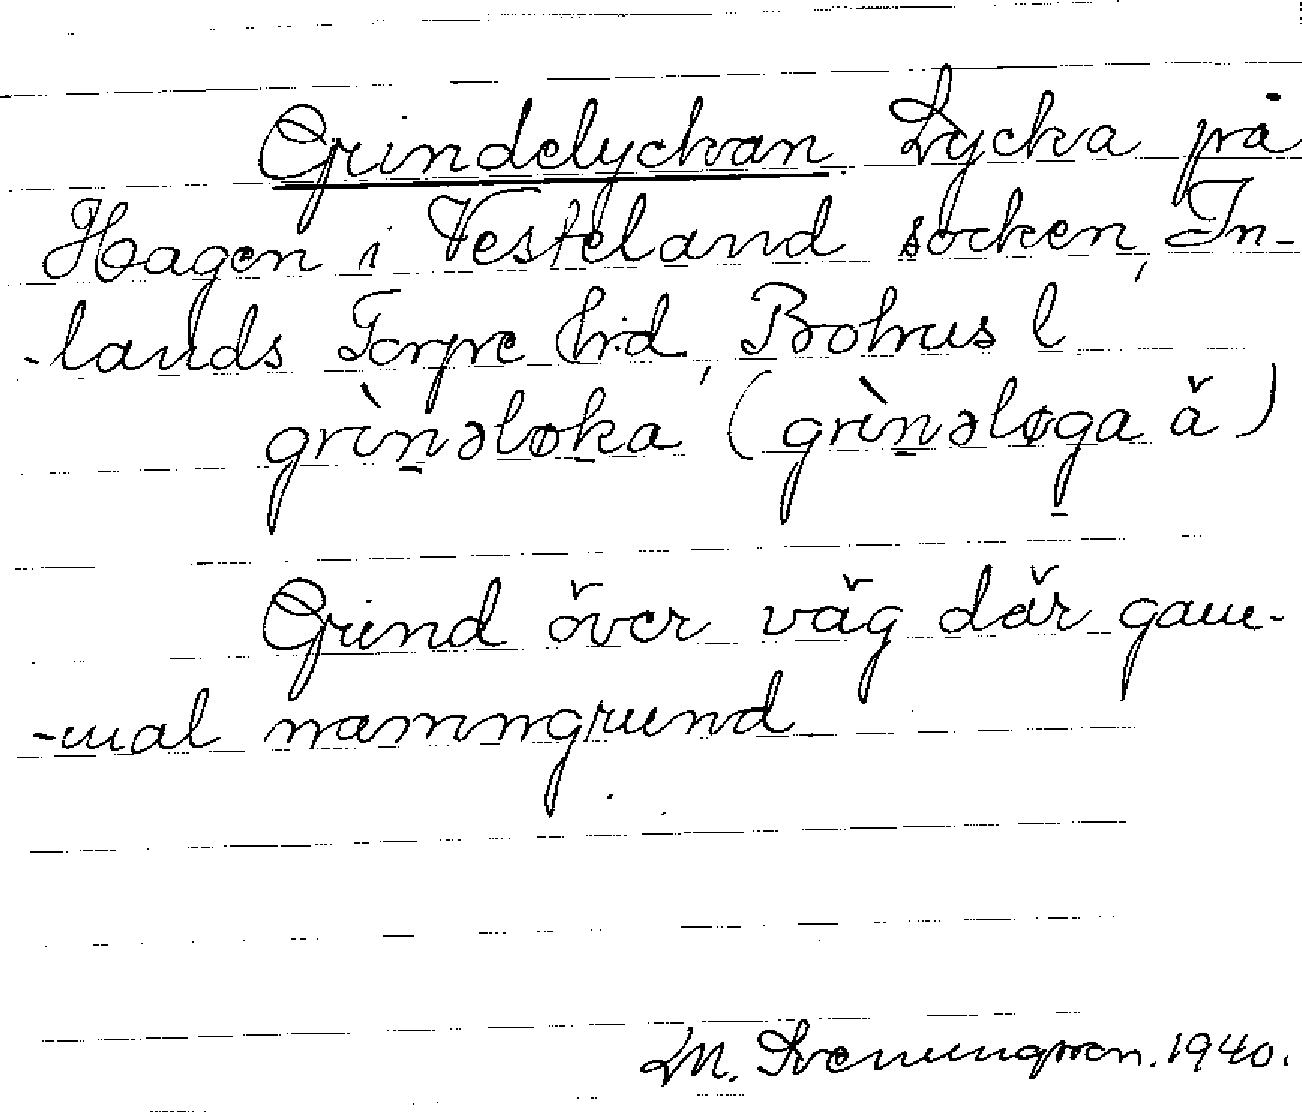 Grindelyckan Lycka på
Hagen i Vesteland socken, In-
-lands Torpe hd, Bohus l
grìnəløka (grìnələga ä)
Grind över väg där gam-
-mal namngrund
M. Svenungsson. 1940.